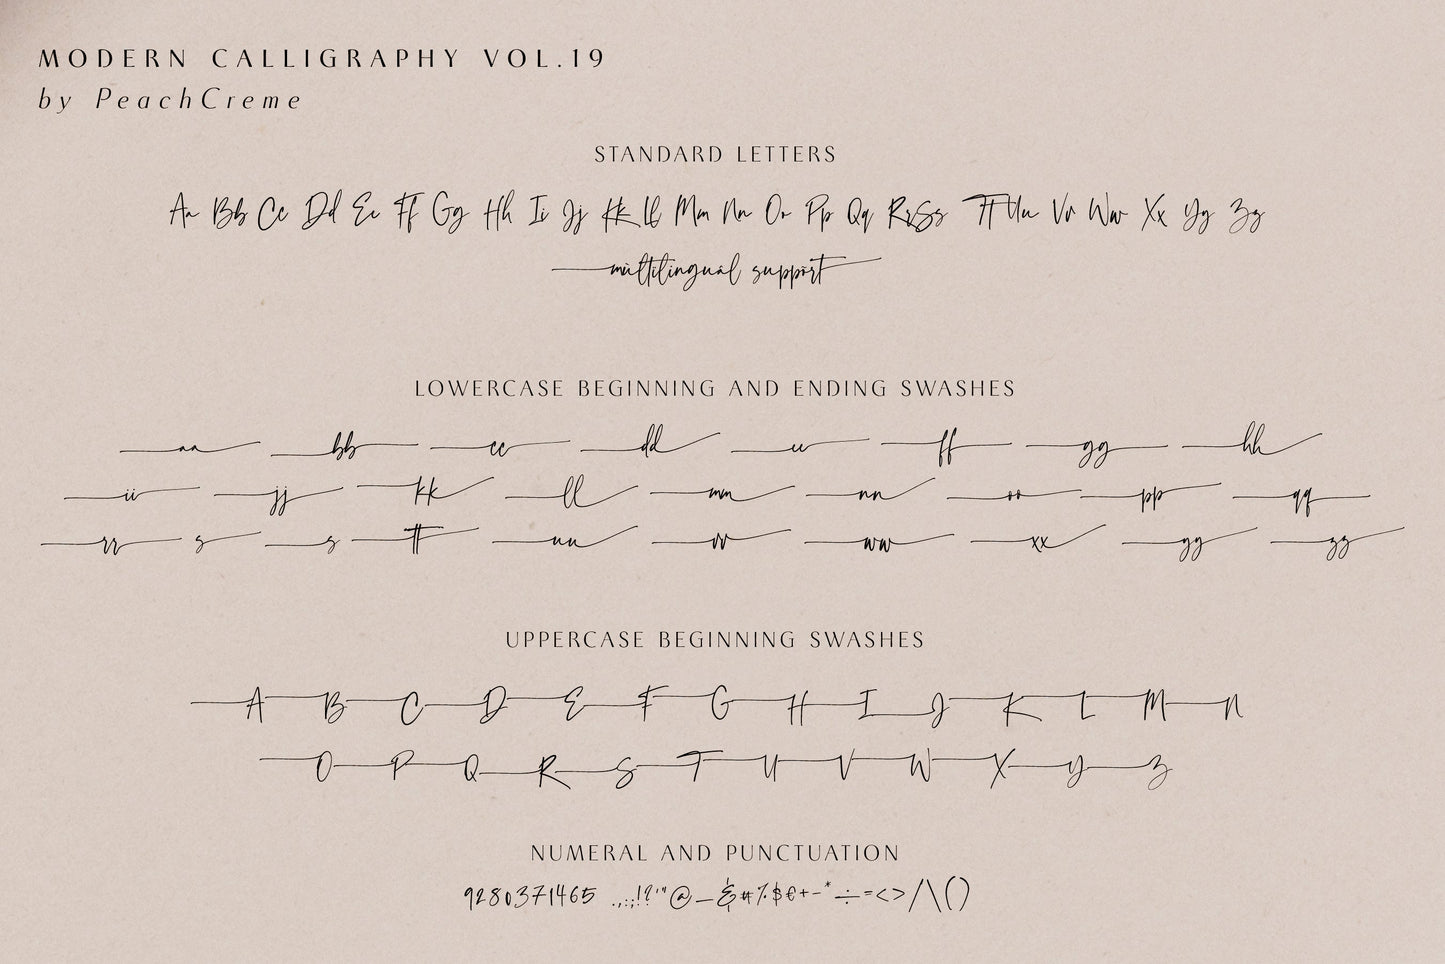 MODERN CALLIGRAPHY VOL.19
by PeachCreme
STANDARD LETTERS
Aa Bb Cc Dd Ee Ff Gg Hh Ii Jj Kk Ll Mm Nn Oo Pp Qq Rr Ss Tt Uu Vv Ww Xx Yy Zz
multilingual support
LOWERCASE BEGINNING AND ENDING SWASHES
aa bb cc dd ee ff gg hh
ii jj kk ll mm nn oo pp qq
rr s s tt uu vv ww xx yy zz
UPPERCASE BEGINNING SWASHES
A B C D E F G H I J K L M N
O P Q R S T U V W X Y Z
NUMERAL AND PUNCTUATION
9280371465 .,:;!?'"@_&#%$€+-*÷=<>/\()